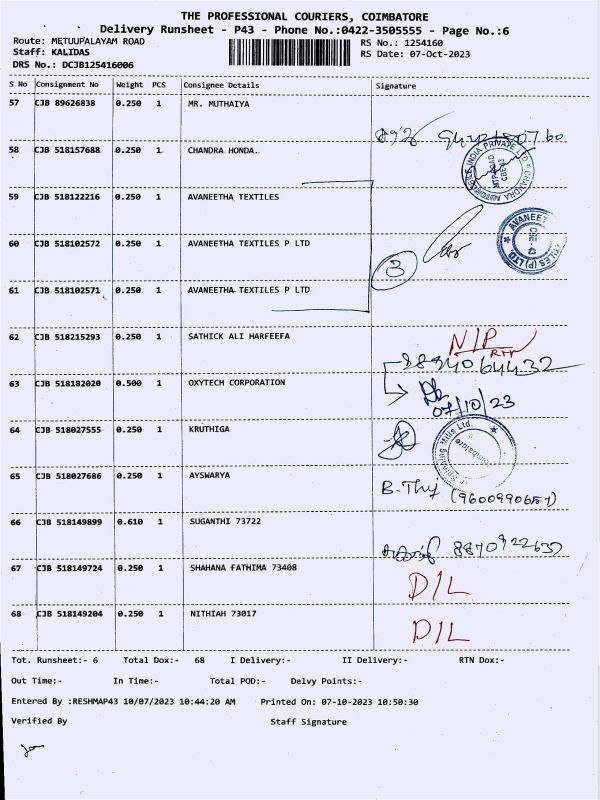 THE PROFESSIONAL COURIERS, COIMBATORE
Delivery Runsheet - P43 - Phone No.:0422-3505555 - Page No.:6
Route: METUUPALAYAM ROAD
RS No.: 1254160
Staff: KALIDAS
RS Date: 07-Oct-2023
DRS No.: DCJB125416006
S No Consignment No Weight PCS Consignee Details Signature
57 CJB 89626838 0.250 1 MR. MUTHAIYA
58 CJB 518157688 0.250 1 CHANDRA HONDA.
59 CJB 518122216 0.250 1 AVANEETHA TEXTILES
60 CJB 518102572 0.250 1 AVANEETHA TEXTILES P LTD
3
61 CJB 518102571 0.250 1 AVANEETHA TEXTILES P LTD
62 CJB 518215293 0.250 1 SATHICK ALI HARFEEFA N/P
RTN
8894064432
63 CJB 518182020 0.500 1 OXYTECH CORPORATION
07/10/23
64 CJB 518027555 0.250 1 KRUTHIGA
65 CJB 518027686 0.250 1 AYSWARYA
B. Thij (9600990657)
66 CJB 518149899 0.610 1 SUGANTHI 73722
8870922637
67 CJB 518149724 0.250 1 SHAHANA FATHIMA 73408
D/L
68 CJB 518149204 0.250 1 NITHIAH 73017
D/L
Tot. Runsheet:- 6 Total Dox:- 68 I Delivery:- II Delivery:- RTN Dox:-
Out Time:- In Time:- Total POD:- Delvy Points:-
Entered By :RESHMAP43 10/07/2023 10:44:20 AM Printed On: 07-10-2023 10:50:30
Verified By Staff Signature